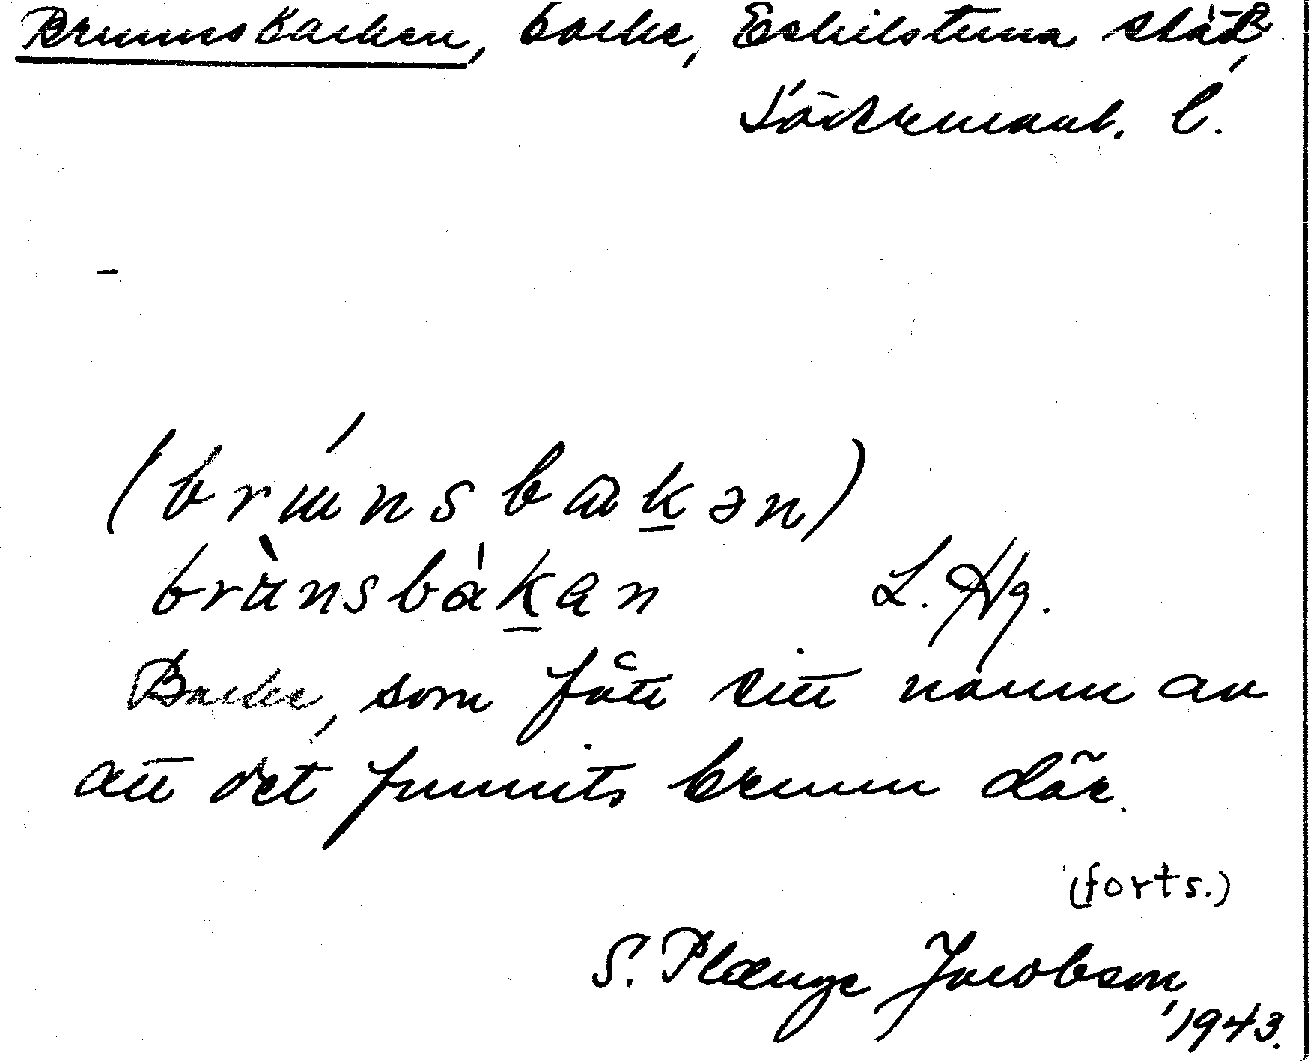 Brunnsbacken, backe, Eskilstuna stad,
Södermanl. l.
(brɯ́nsbaḵən)
brὰnsbàḵan L. Hg.
Backe, som fått sitt namn av
att det funnits brunn där.
(forts.)
S. Plænge Jacobson,
1943.